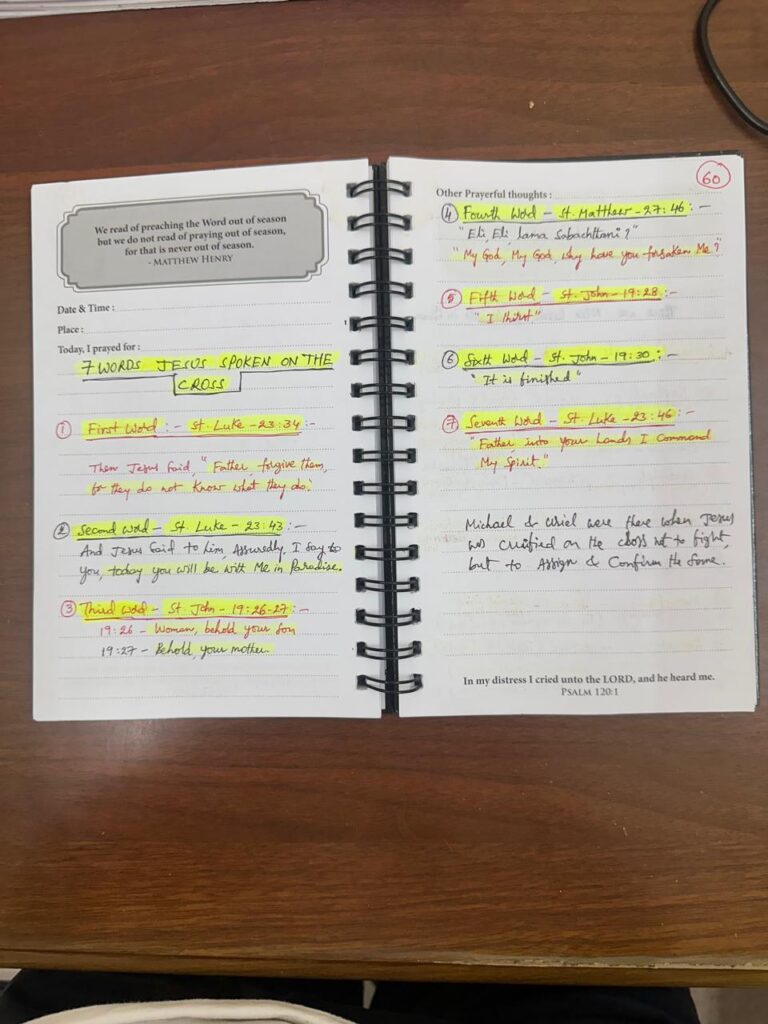 We read of preaching the Word out of season
but we do not read of praying out of season,
for that is never out of season.
- MATTHEW HENRY
Date & Time :
Place :
Today, I prayed for :
7 WORDS JESUS SPOKEN ON THE
CROSS
① First Word :- St. Luke - 23:34 :-
Then Jesus Said, "Father forgive them,
for they do not know what they do."
② Second Word - St. Luke - 23:43 :-
And Jesus Said to him Assuredly, I Say to
you, today you will be with Me in Paradise.
③ Third Word - St. John - 19:26-27 :-
19:26 - Woman, behold your Son
19:27 - Behold, your mother.
60
Other Prayerful thoughts :
④ Fourth Word - St. Matthew - 27:46 :-
"Eli, Eli, lama Sabachthani ?"
"My God, My God, why have you forsaken Me ?"
⑤ Fifth Word - St. John - 19:28 :-
"I thirst"
⑥ Sixth Word - St. John - 19:30 :-
"It is finished"
⑦ Seventh Word - St. Luke - 23:46 :-
"Father, into your hands I Command
My Spirit."
Michael & Uriel were there when Jesus
was crucified on the cross not to fight,
but to Assign & Confirm the Same.
In my distress I cried unto the LORD, and he heard me.
PSALM 120:1